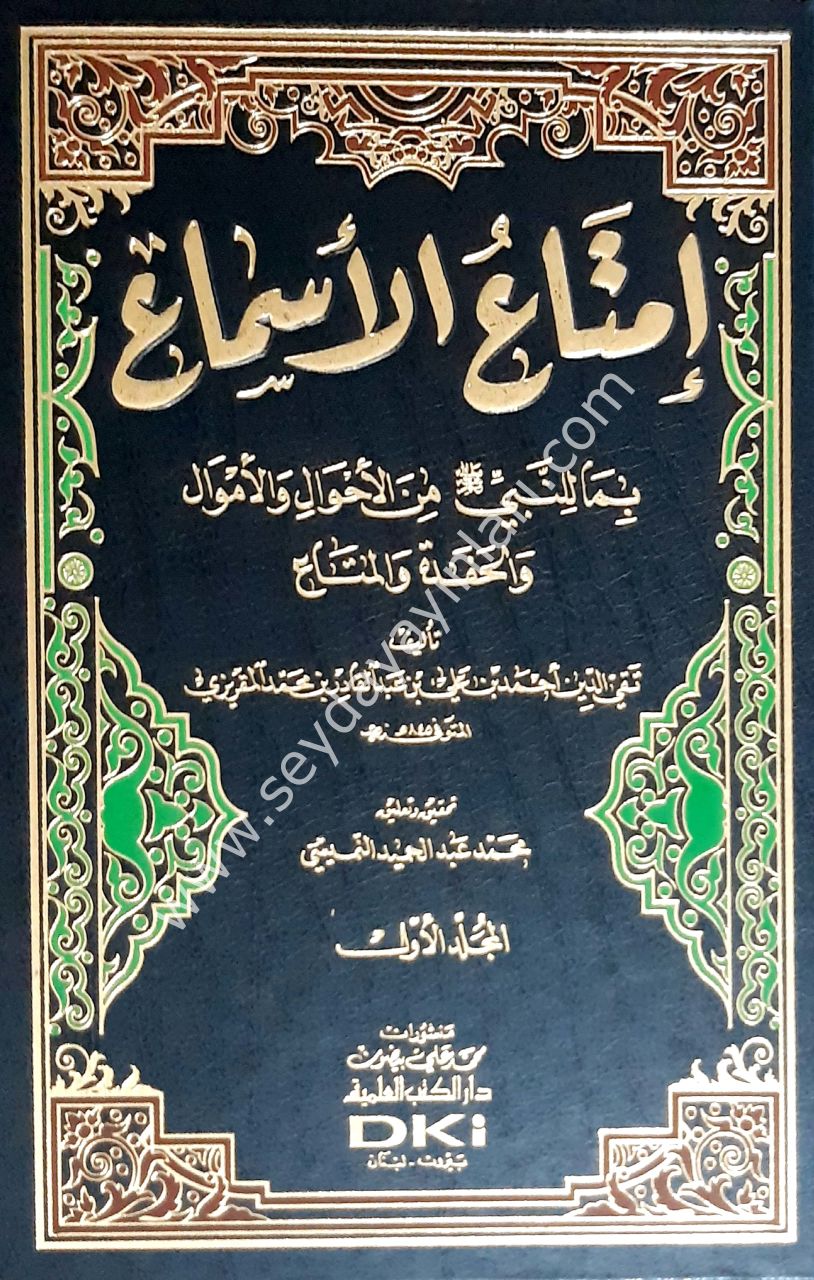 إِمتَاعُ الأَسمَاع
بِمَا لِلنَّبِيِّ ﷺ مِنَ الأَحْوَالِ وَالأَمْوَالِ
وَالحَفَدَةِ وَالمَتَاعِ
تأليف
تقي الدين أحمد بن علي بن عبد القادر بن محمد المقريزي
المتوفى ٨٤٥ هـ
تحقيق وتعليق
محمد عبد الحميد النميسي
المجلّد الأوّل
منشورات
محمد علي بيضون
دار الكتب العلمية
DKi
بيروت - لبنان
www.seydayayinlari.com